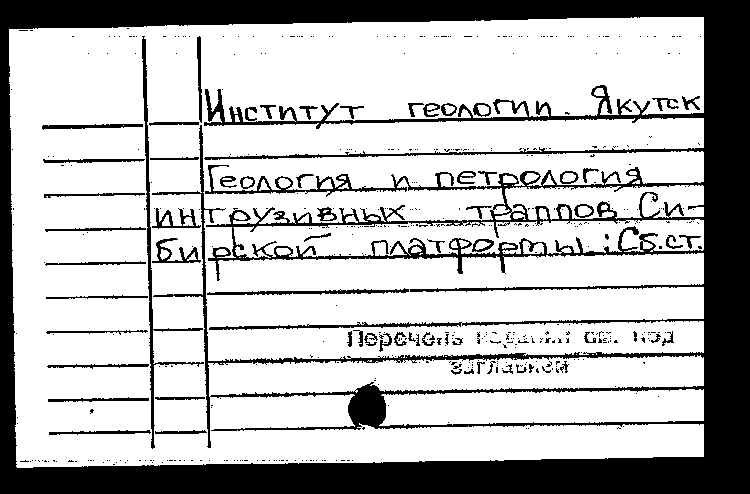 Институт геологии. Якутск
Геология и петрология
интрузивных траппов Си-
бирской платформы: Сб.ст.
Перечень изданий см. под
заглавием